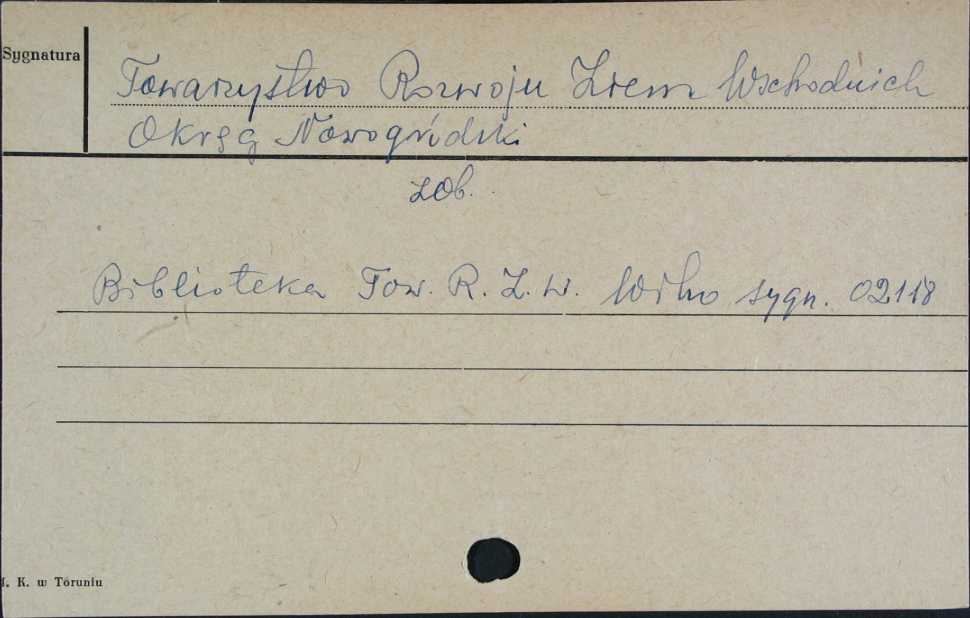 Sygnatura
Towarzystwo Rozwoju Ziem Wschodnich
Okręg Nowogródzki
zob.
Biblioteka Tow. R. Z. W. Wilno sygn. 02118
K. w Toruniu